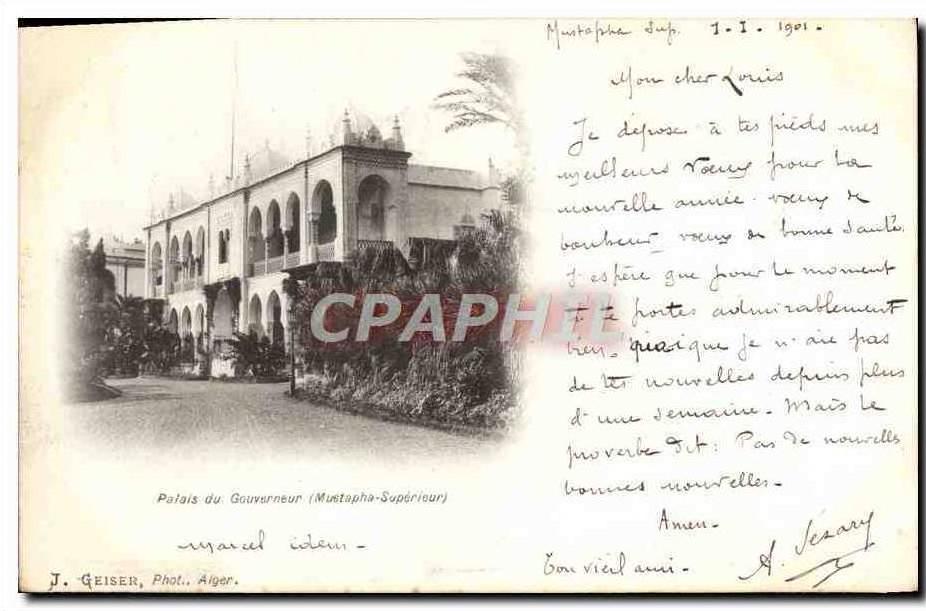 Mustapha Sup. 1-I-1901-
Mon cher Louis
Je dépose à tes pieds mes
meilleurs vœux pour la
nouvelle année - vœux de
bonheur vœux de bonne santé.
J'espère que pour le moment
tu te portes admirablement
bien, quoique je n'aie pas
de tes nouvelles depuis plus
d'une semaine - Mais le
proverbe dit: Pas de nouvelles
bonnes nouvelles -
Amen -
Ton vieil ami -
CPAPHIL.com
Palais du Gouverneur (Mustapha-Supérieur)
Marcel idem -
J. GEISER, Phot., Alger.